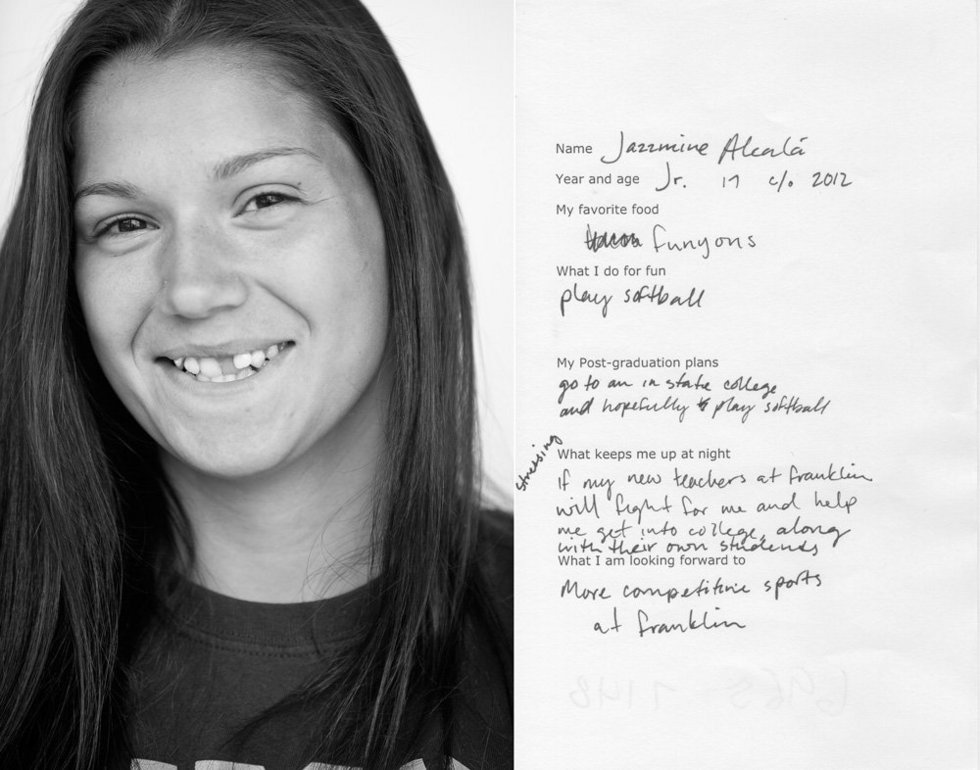 Name Jazzmine Alcalá
Year and age Jr. 17 c/o 2012
My favorite food
funyons
What I do for fun
play softball
My Post-graduation plans
go to an in state college
and hopefully play softball
stressing
What keeps me up at night
if my new teachers at franklin
will fight for me and help
me get into college, along
with their own students
What I am looking forward to
More competitive sports
at franklin